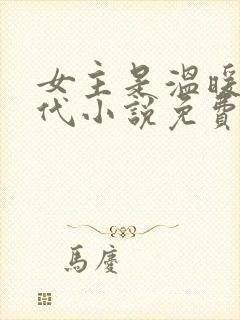 女主是溫暖
代小說免費
馬慶